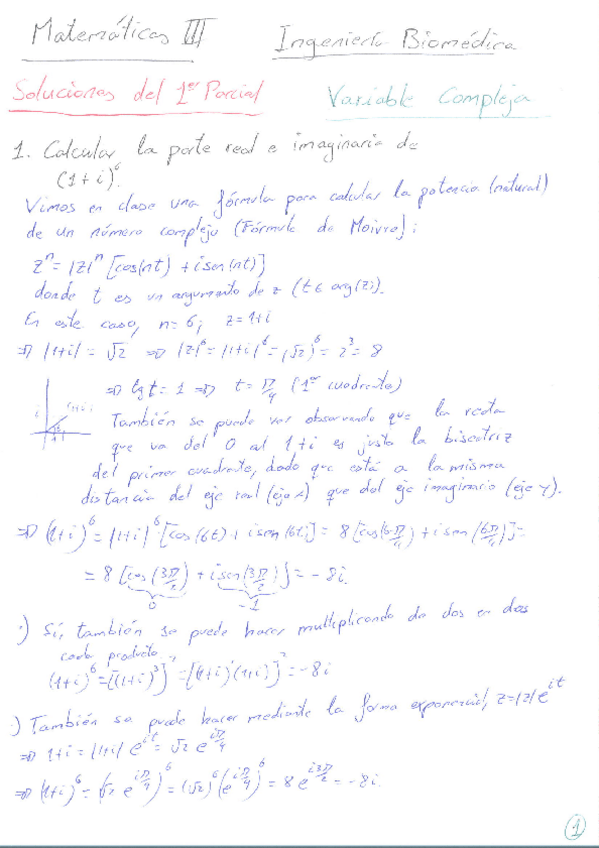 Matemáticas III Ingeniería Biomédica
Soluciones del 1er Parcial Variable Compleja
1. Calcular la parte real e imaginaria de
(1+i)^6.
Vimos en clase una fórmula para calcular la potencia (natural)
de un número complejo (Fórmula de Moivre):
z^n = |z|^n [cos(nt) + i sen(nt)]
donde t es un argumento de z (t ∈ arg(z)).
En este caso, n=6; z=1+i
⇒ |1+i| = √2 ⇒ |z|^6 = |1+i|^6 = (√2)^6 = 2^3 = 8
⇒ tg t = 1 ⇒ t = π/4 (1er cuadrante)
También se puede ver observando que la recta
que va del 0 al 1+i es justo la bisectriz
del primer cuadrante, dado que está a la misma
distancia del eje real (eje x) que del eje imaginario (eje y).
⇒ (1+i)^6 = |1+i|^6 [cos(6t) + i sen(6t)] = 8 [cos(6π/4) + i sen(6π/4)] =
= 8 [cos(3π/2) + i sen(3π/2)] = -8i.
0 -1
·) Sí, también se puede hacer multiplicando de dos en dos
cada producto
(1+i)^6 = [(1+i)^3]^2 = [(1+i)^2(1+i)]^2 = -8i
·) También se puede hacer mediante la forma exponencial, z=|z|e^{it}
⇒ 1+i = |1+i| e^{it} = √2 e^{iπ/4}
⇒ (1+i)^6 = (√2 e^{iπ/4})^6 = (√2)^6 (e^{iπ/4})^6 = 8 e^{i3π/2} = -8i.
1